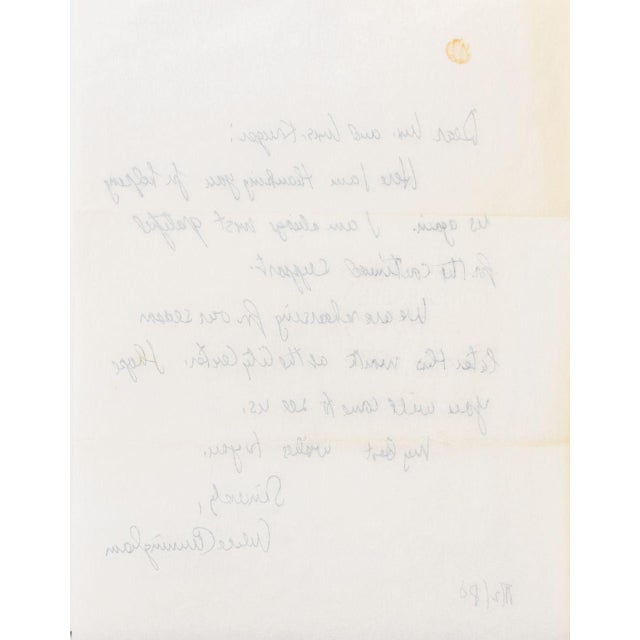 Dear Mr. and Mrs. Kruger:
Here I am thanking you for helping
us again. I am always most grateful
for the continued support.
We are rehearsing for our season
later this month at the City Center. I hope
you will come to see us.
My best wishes to you.
Sincerely,
Merce Cunningham